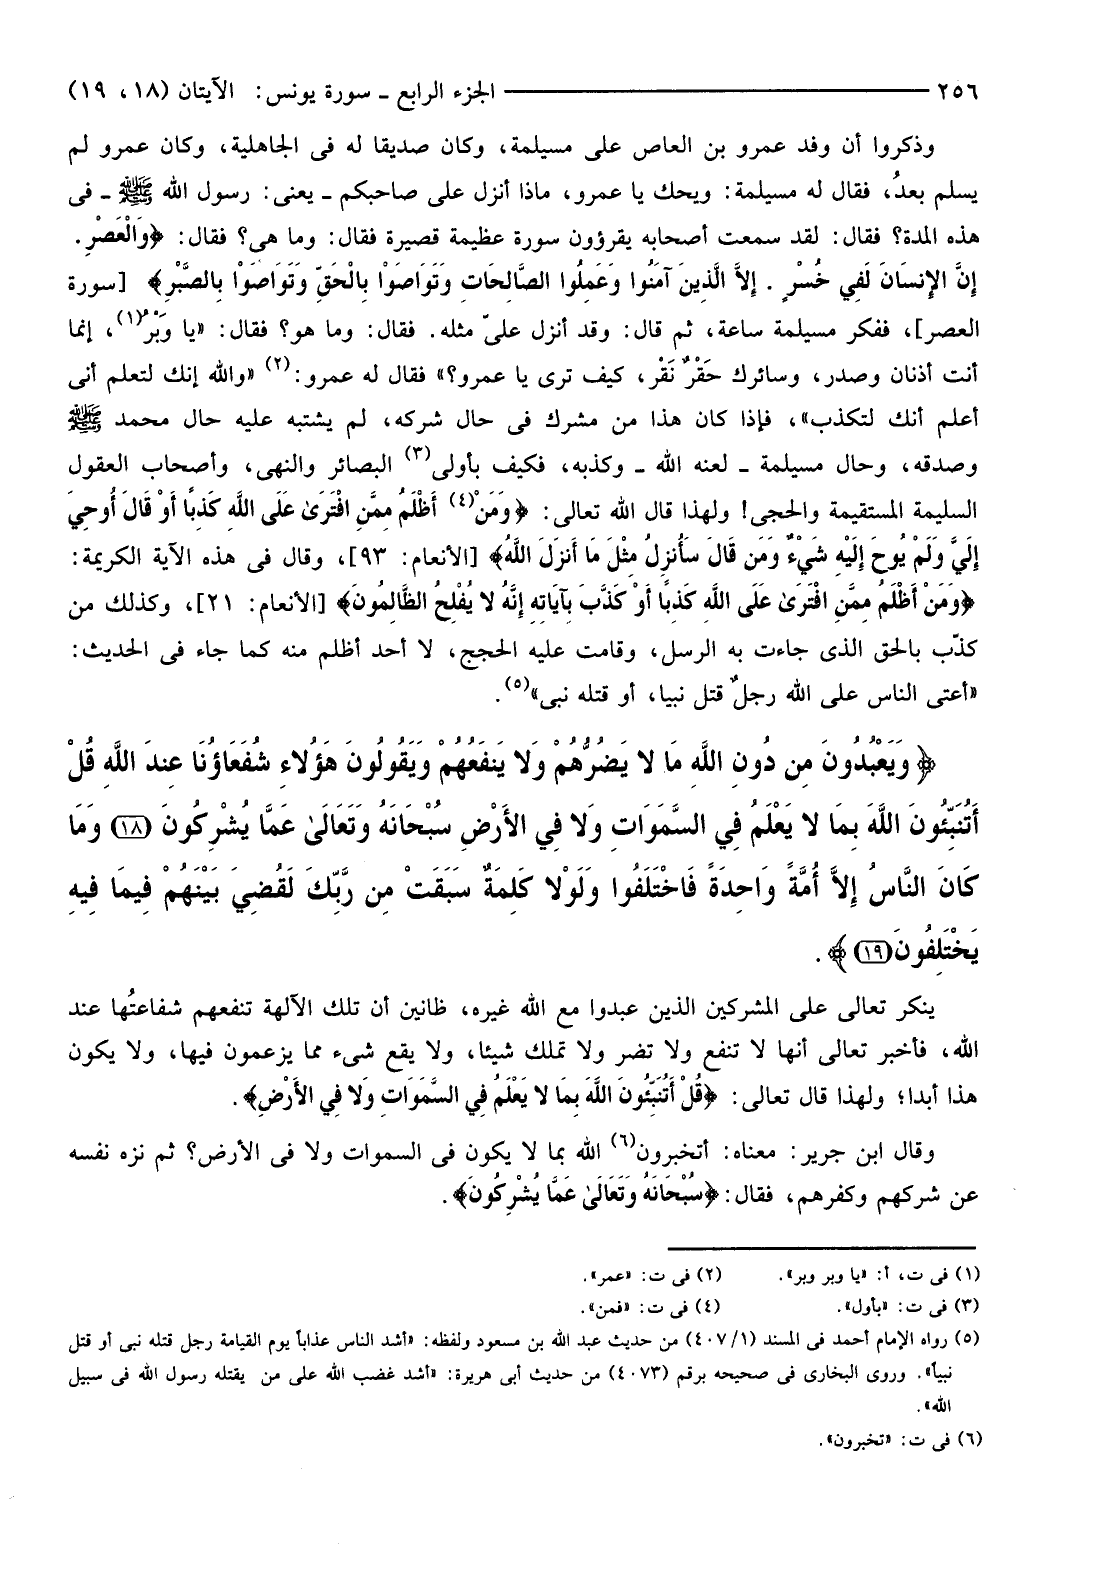 ٢٥٦ ــــــــــــــــــــ الجزء الرابع ـ سورة يونس: الآيتان (١٨، ١٩)
وذكروا أن وفد عمرو بن العاص على مسيلمة، وكان صديقا له فى الجاهلية، وكان عمرو لم
يسلم بعدُ، فقال له مسيلمة: ويحك يا عمرو، ماذا أنزل على صاحبكم ـ يعنى: رسول الله ﷺ ـ فى
هذه المدة؟ فقال: لقد سمعت أصحابه يقرؤون سورة عظيمة قصيرة فقال: وما هى؟ فقال: ﴿وَالْعَصْرِ.
إِنَّ الإِنسَانَ لَفِي خُسْرٍ . إِلاَّ الَّذِينَ آمَنُوا وَعَمِلُوا الصَّالِحَاتِ وَتَوَاصَوْا بِالْحَقِّ وَتَوَاصَوْا بِالصَّبْرِ﴾ [سورة
العصر]، ففكر مسيلمة ساعة، ثم قال: وقد أنزل علىّ مثله. فقال: وما هو؟ فقال: «يا وَبْرُ(١)، إنما
أنت أذنان وصدر، وسائرك حَقْرٌ نَقْر، كيف ترى يا عمرو؟» فقال له عمرو:(٢) «والله إنك لتعلم أنى
أعلم أنك لتكذب»، فإذا كان هذا من مشرك فى حال شركه، لم يشتبه عليه حال محمد ﷺ
وصدقه، وحال مسيلمة ـ لعنه الله ـ وكذبه، فكيف بأولى(٣) البصائر والنهى، وأصحاب العقول
السليمة المستقيمة والحجى! ولهذا قال الله تعالى: ﴿وَمَنْ(٤) أَظْلَمُ مِمَّنِ افْتَرَىٰ عَلَى اللَّهِ كَذِبًا أَوْ قَالَ أُوحِيَ
إِلَيَّ وَلَمْ يُوحَ إِلَيْهِ شَيْءٌ وَمَن قَالَ سَأُنزِلُ مِثْلَ مَا أَنزَلَ اللَّهُ﴾ [الأنعام: ٩٣]، وقال فى هذه الآية الكريمة:
﴿وَمَنْ أَظْلَمُ مِمَّنِ افْتَرَىٰ عَلَى اللَّهِ كَذِبًا أَوْ كَذَّبَ بِآيَاتِهِ إِنَّهُ لا يُفْلِحُ الظَّالِمُونَ﴾ [الأنعام: ٢١]، وكذلك من
كذّب بالحق الذى جاءت به الرسل، وقامت عليه الحجج، لا أحد أظلم منه كما جاء فى الحديث:
«أعتى الناس على الله رجلٌ قتل نبيا، أو قتله نبى»(٥).
﴿وَيَعْبُدُونَ مِن دُونِ اللَّهِ مَا لا يَضُرُّهُمْ وَلا يَنفَعُهُمْ وَيَقُولُونَ هَؤُلاءِ شُفَعَاؤُنَا عِندَ اللَّهِ قُلْ
أَتُنَبِّئُونَ اللَّهَ بِمَا لا يَعْلَمُ فِي السَّمَوَاتِ وَلا فِي الأَرْضِ سُبْحَانَهُ وَتَعَالَىٰ عَمَّا يُشْرِكُونَ (١٨) وَمَا
كَانَ النَّاسُ إِلاَّ أُمَّةً وَاحِدَةً فَاخْتَلَفُوا وَلَوْلا كَلِمَةٌ سَبَقَتْ مِن رَّبِّكَ لَقُضِيَ بَيْنَهُمْ فِيمَا فِيهِ
يَخْتَلِفُونَ (١٩)﴾ .
ينكر تعالى على المشركين الذين عبدوا مع الله غيره، ظانين أن تلك الآلهة تنفعهم شفاعتُها عند
الله، فأخبر تعالى أنها لا تنفع ولا تضر ولا تملك شيئا، ولا يقع شىء مما يزعمون فيها، ولا يكون
هذا أبدا؛ ولهذا قال تعالى: ﴿قُلْ أَتُنَبِّئُونَ اللَّهَ بِمَا لا يَعْلَمُ فِي السَّمَوَاتِ وَلا فِي الأَرْضِ﴾.
وقال ابن جرير: معناه: أتخبرون(٦) الله بما لا يكون فى السموات ولا فى الأرض؟ ثم نزه نفسه
عن شركهم وكفرهم، فقال: ﴿سُبْحَانَهُ وَتَعَالَىٰ عَمَّا يُشْرِكُونَ﴾.
(١) فى ت، أ: «يا وبر وبر». (٢) فى ت: «عمر».
(٣) فى ت: «بأول». (٤) فى ت: «فمن».
(٥) رواه الإمام أحمد فى المسند (٤٠٧/١) من حديث عبد الله بن مسعود ولفظه: «أشد الناس عذاباً يوم القيامة رجل قتله نبى أو قتل
نبياً». وروى البخارى فى صحيحه برقم (٤٠٧٣) من حديث أبى هريرة: «أشد غضب الله على من يقتله رسول الله فى سبيل
الله».
(٦) فى ت: «تخبرون».